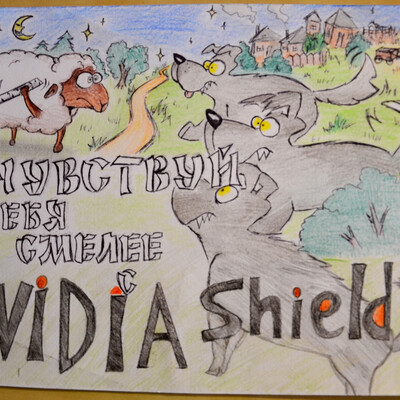 ЧУВСТВУЙ
ЕБЯ
СМЕЛЕЕ
С
ViDiA Shield